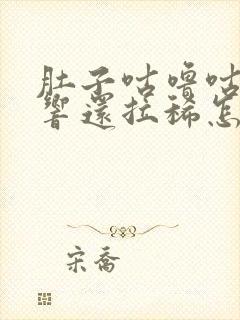 肚子咕噜咕
響還拉稀怎
宋喬